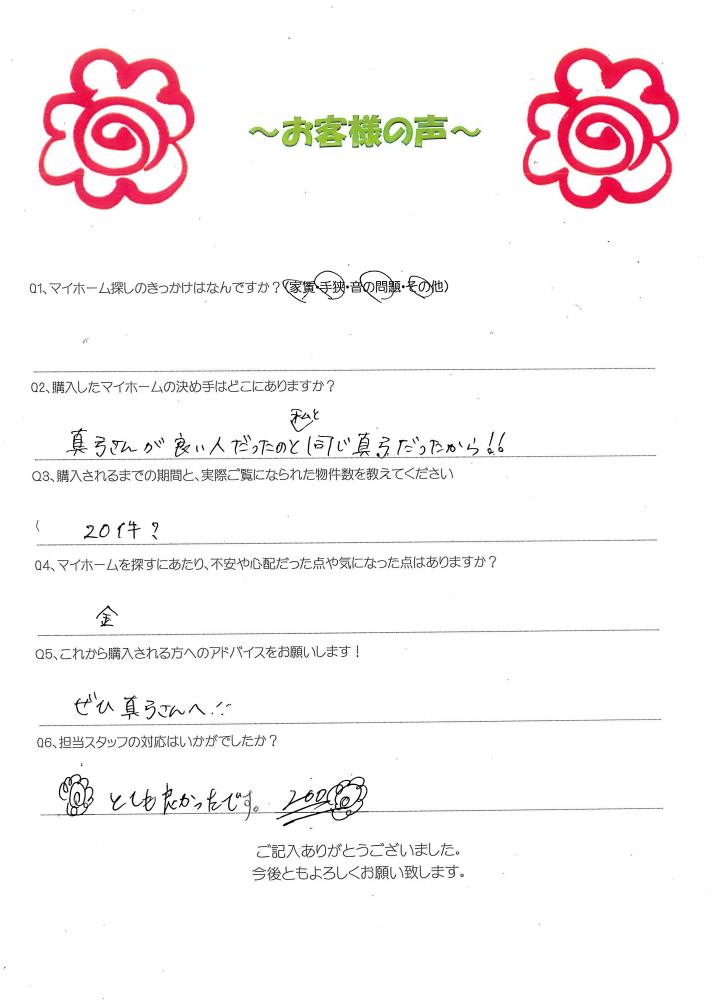 ～お客様の声～
Q1、マイホーム探しのきっかけはなんですか？（家賃・手狭・音の問題・その他）
Q2、購入したマイホームの決め手はどこにありますか？
私と
真弓さんが良い人だったのと同じ真弓だったから!!
Q3、購入されるまでの期間と、実際ご覧になられた物件数を教えてください
20件？
Q4、マイホームを探すにあたり、不安や心配だった点や気になった点はありますか？
金
Q5、これから購入される方へのアドバイスをお願いします！
ぜひ真弓さんへ!!
Q6、担当スタッフの対応はいかがでしたか？
とても良かったです。200
ご記入ありがとうございました。
今後ともよろしくお願い致します。